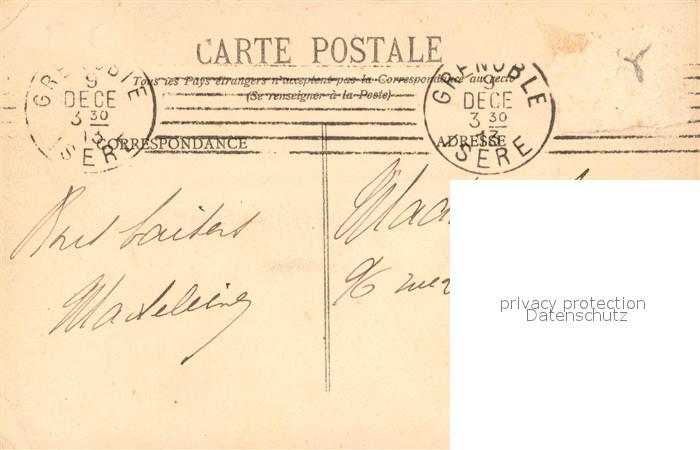 CARTE POSTALE
Tous les Pays étrangers n'acceptent pas la Correspondance au recto
(Se renseigner à la Poste)
GRENOBLE
9
DECE
3 30
13
ISERE
GRENOBLE
9
DECE
3 30
13
ISERE
CORRESPONDANCE
ADRESSE
baisers
Madeleine
privacy protection
Datenschutz